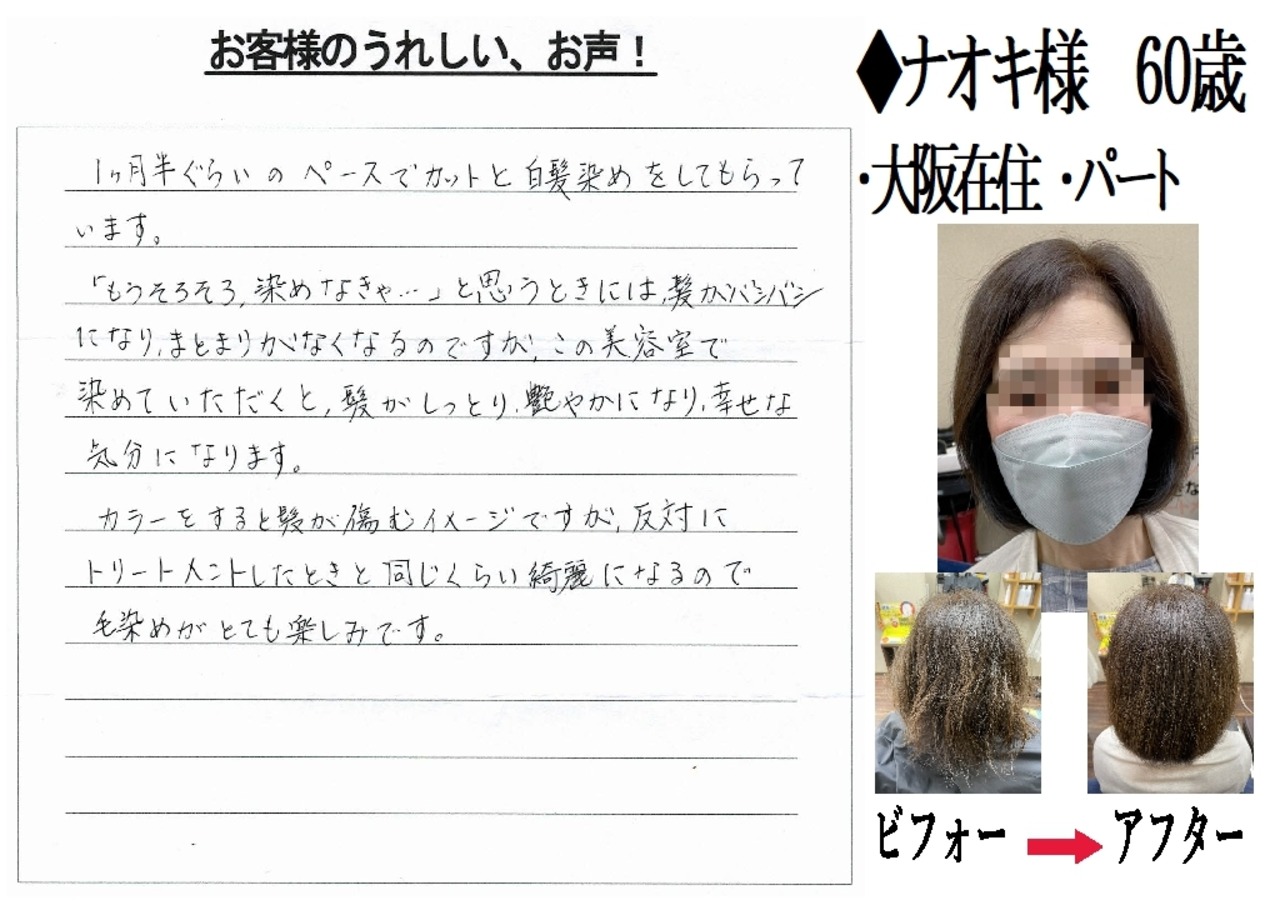 お客様のうれしい、お声！
1ヶ月半ぐらいのペースでカットと白髪染めをしてもらって
います。
「もうそろそろ、染めなきゃ…」と思うときには、髪がバシバシ
になり、まとまりがなくなるのですが、この美容室で
染めていただくと、髪がしっとり、艶やかになり、幸せな
気分になります。
カラーをすると髪が傷むイメージですが、反対に
トリートメントしたときと同じくらい綺麗になるので
毛染めがとても楽しみです。
◆ナオキ様　60歳
・大阪在住・パート
ビフォー
アフター